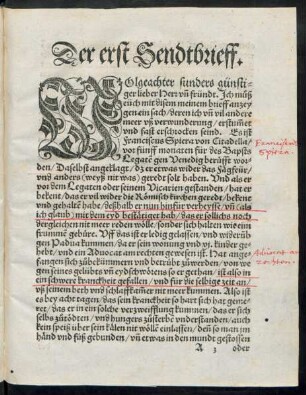 Der erst Sendtbrieff.
WOlgeachter sunders günsti-
ger lieber Herr vñ fründt. Ich můß
eüch mit disem meinem brieff anzey
gen ein sach / deren ich vñ vil andere
mer vß verwunderung / erstunet
vnd fast erschrocken seind. Es ist
Franciscus Spiera von Citadella /
vor fünff monaten für des Bapsts
Legatē gen Venedig berüfft wor
den / Daselbst angeklagt / dz er etwas wider das Fägfeür /
vnd anders (weyß nit was) geredt solt haben. Vnd als er
vor dem Legaten oder seinem Vicarien gestanden / hat er
bekent / das er vil wider die Römisch kirchen geredt / bekent
vnd gehalten habe / deßhalb er nun hinfür verheysse / vñ (als
ich glaub) mit dem eyd bestätiget hab / das er sollichs noch
dergleichen nit mer reden wölle / sonder sich halten wie ein
frummē gebüre. Vff das ist er ledig gelassen / vnd widerum
gen Padua kummen / da er sein wonung vnd vj. kinder ge-
hebt / vnd ein Aduocat am rechten gewesen ist. Hat ange-
fangen sich entschütten vnd betrübt zůwerden / von we-
gen seines gelübts vñ eydschwörens so er gethan / ist also in
ein schwere kranckheit gefallen / vnd für die selbige zeit an /
vß seinem beth vnd schlaffkamer nit mer kummen. Also ist
es bey acht tagen / das sein kranckheit so hart sich hat geme-
ret / das er in ein solche verzwyfflung kummen / das er sich
selbs zůtödten / vnd hungers zůsterbē vnderstanden / auch
kein speiß über sein kälen nit wöllē einlassen / den so man im
händ vnd füß gebunden / vñ etwas in den mundt gestossen
A 3 oder
Franciscus
Spiera.